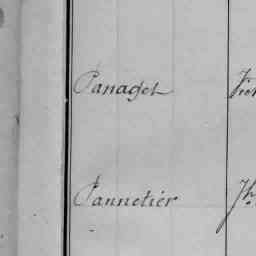 Panaget
Pannetier